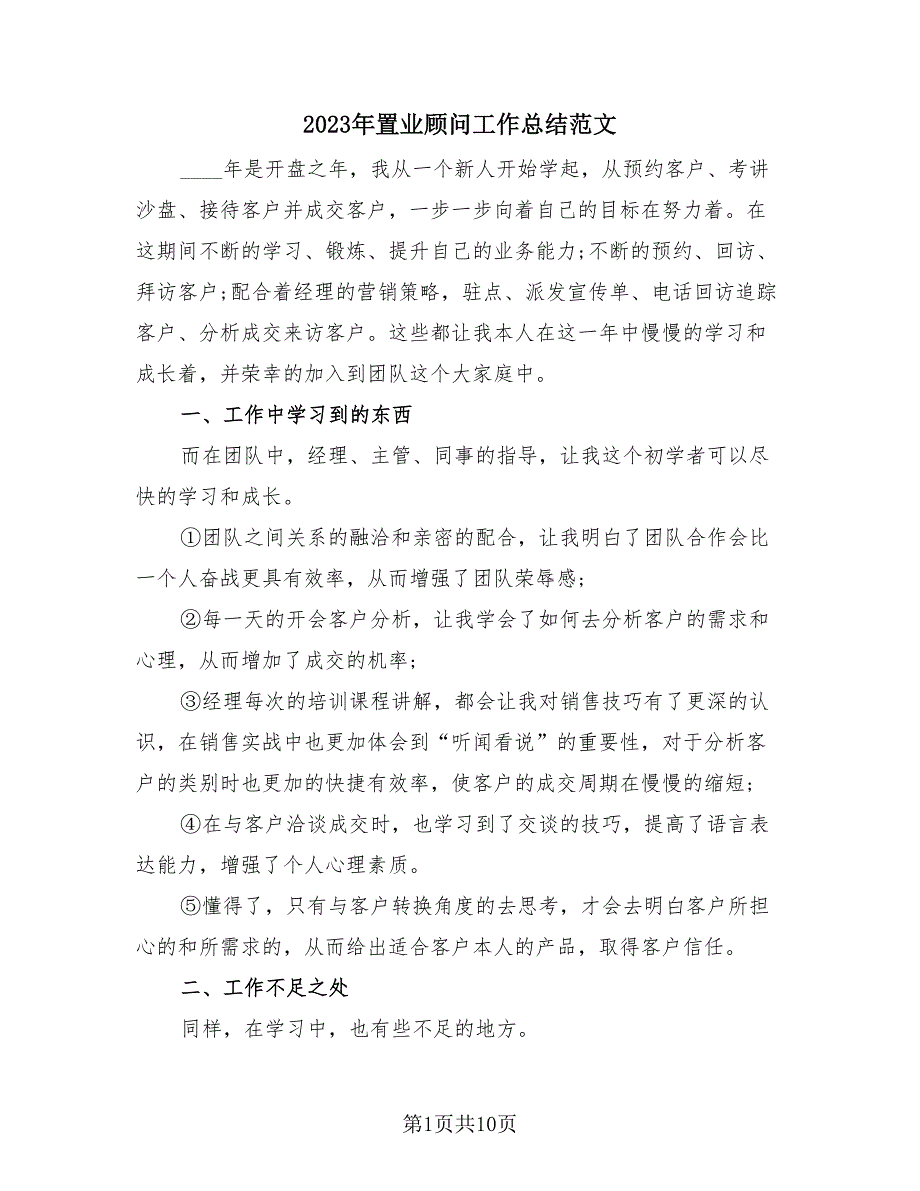 2023年置业顾问工作总结范文
____年是开盘之年，我从一个新人开始学起，从预约客户、考讲
沙盘、接待客户并成交客户，一步一步向着自己的目标在努力着。在
这期间不断的学习、锻炼、提升自己的业务能力;不断的预约、回访、
拜访客户;配合着经理的营销策略，驻点、派发宣传单、电话回访追踪
客户、分析成交来访客户。这些都让我本人在这一年中慢慢的学习和
成长着，并荣幸的加入到团队这个大家庭中。
一、工作中学习到的东西
而在团队中，经理、主管、同事的指导，让我这个初学者可以尽
快的学习和成长。
①团队之间关系的融洽和亲密的配合，让我明白了团队合作会比
一个人奋战更具有效率，从而增强了团队荣辱感;
②每一天的开会客户分析，让我学会了如何去分析客户的需求和
心理，从而增加了成交的机率;
③经理每次的培训课程讲解，都会让我对销售技巧有了更深的认
识，在销售实战中也更加体会到“听闻看说”的重要性，对于分析客
户的类别时也更加的快捷有效率，使客户的成交周期在慢慢的缩短;
④在与客户洽谈成交时，也学习到了交谈的技巧，提高了语言表
达能力，增强了个人心理素质。
⑤懂得了，只有与客户转换角度的去思考，才会去明白客户所担
心的和所需求的，从而给出适合客户本人的产品，取得客户信任。
二、工作不足之处
同样，在学习中，也有些不足的地方。
第1页共10页